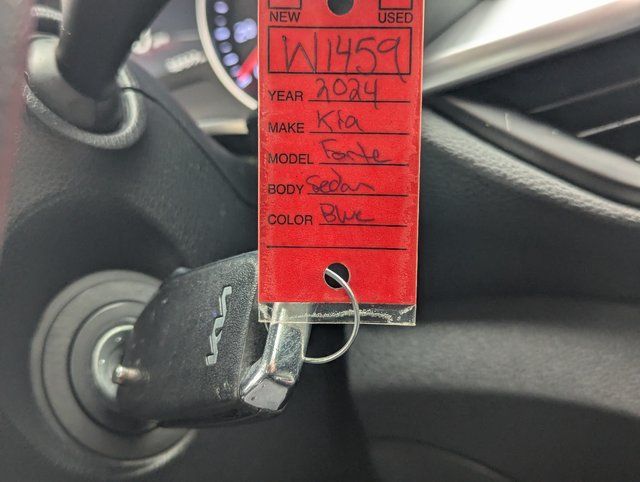 NEW USED
W1459
YEAR 2024
MAKE Kia
MODEL Forte
BODY Sedan
COLOR Blue
KIA